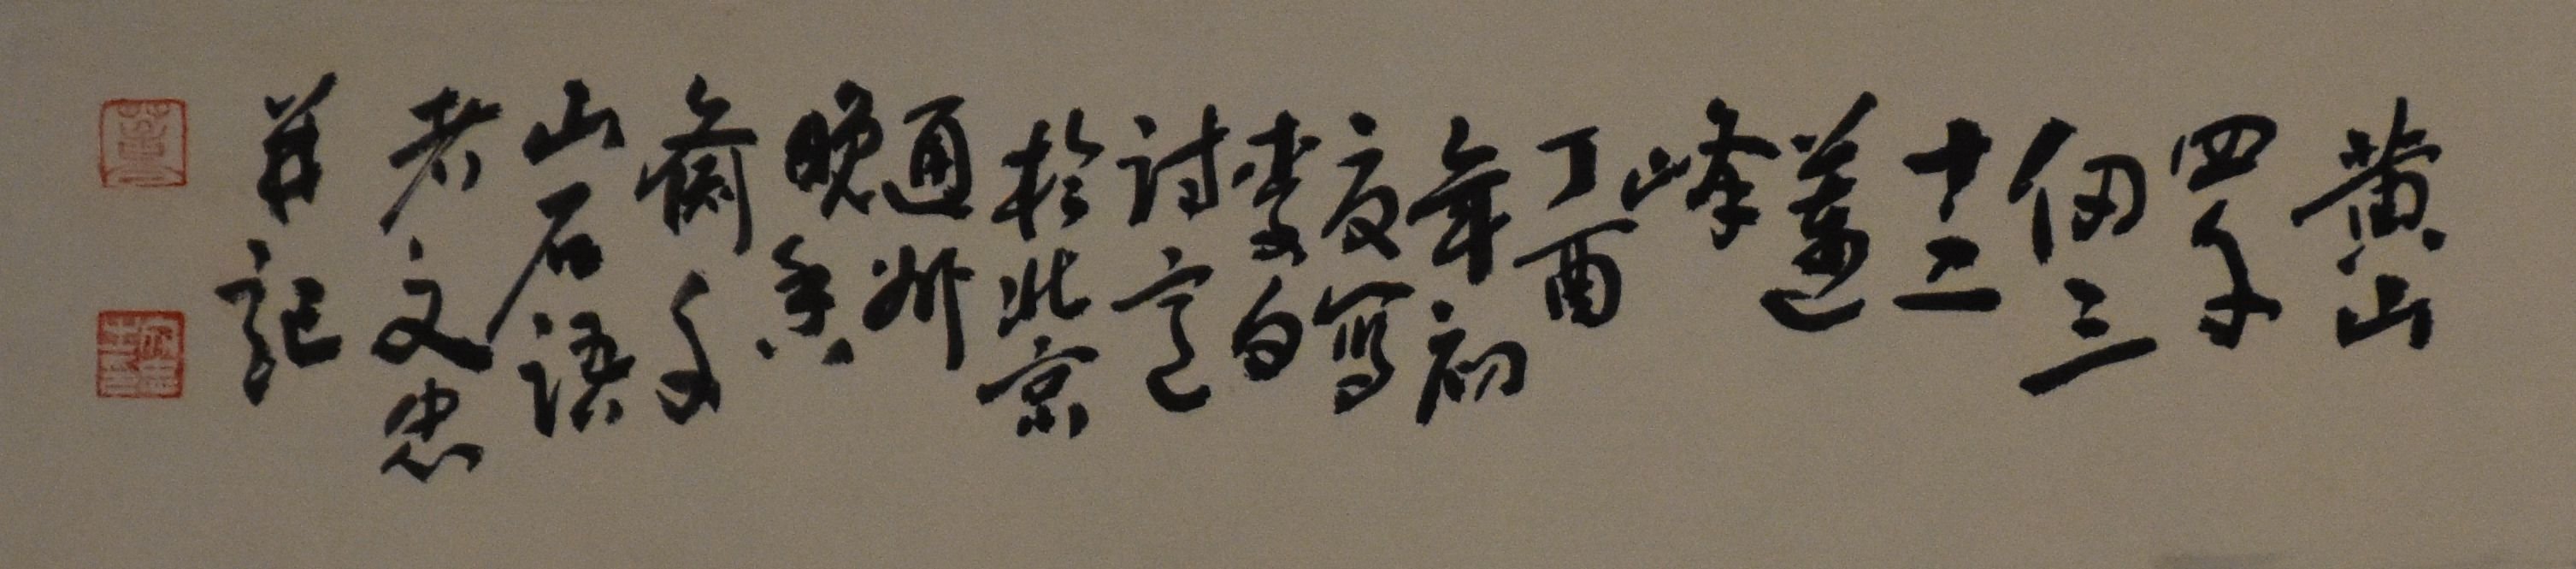 黄山
四千
仞三
十二
蓮
峰
丁酉
年初
夏寫
李白
詩意
於北京
通州
晚
齋
山石語
者文忠
并記